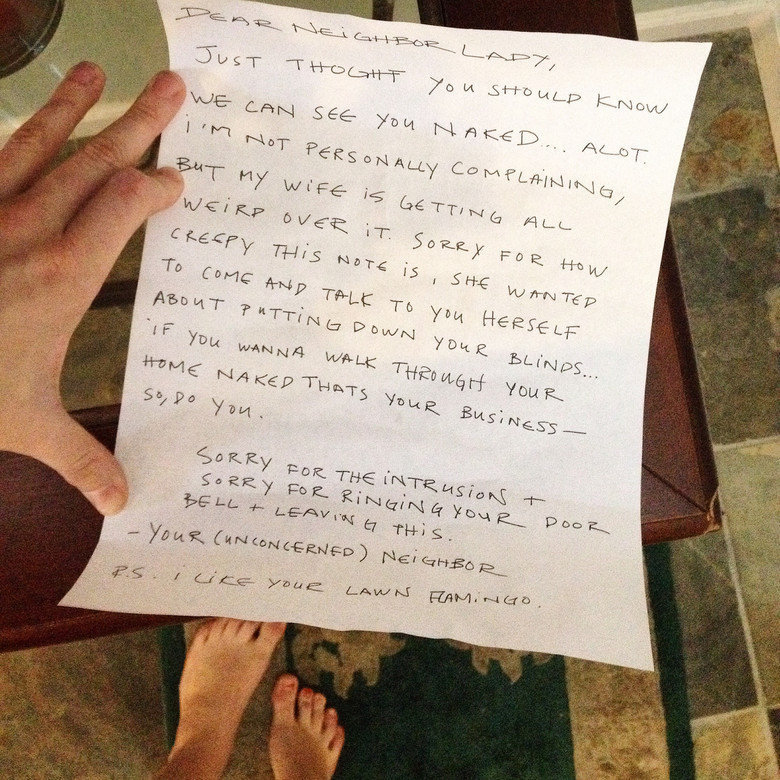 DEAR NEIGHBOR LADY,
JUST THOGHT YOU SHOULD KNOW
WE CAN SEE YOU NAKED.... ALOT.
I'M NOT PERSONALLY COMPLAINING,
BUT MY WIFE IS GETTING ALL
WEIRD OVER IT. SORRY FOR HOW
CREEPY THIS NOTE IS, SHE WANTED
TO COME AND TALK TO YOU HERSELF
ABOUT PUTTING DOWN YOUR BLINDS...
IF YOU WANNA WALK THROUGH YOUR
HOME NAKED THATS YOUR BUSINESS—
SO, DO YOU.
SORRY FOR THE INTRUSION +
SORRY FOR RINGING YOUR DOOR
BELL + LEAVING THIS.
- YOUR (UNCONCERNED) NEIGHBOR
P.S. I LIKE YOUR LAWN FLAMINGO.